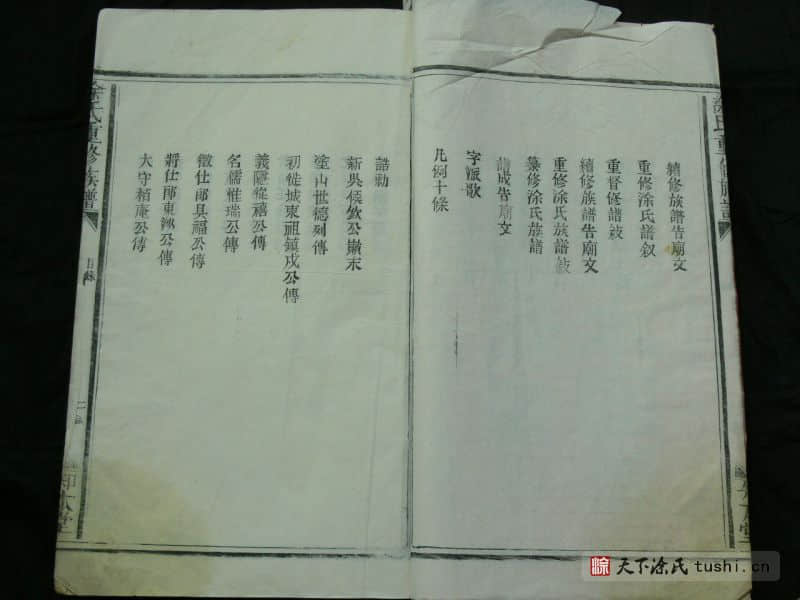 續修族譜告廟文
重修涂氏譜叙
重督修譜敍
續修族譜告廟文
重修涂氏族譜敍
纂修涂氏族譜
譜成告廟文
字派歌
凡例十條
誥勅
新吳侯欽公巔末
塗山世德列傳
初徙城東祖鎮戍公傳
義隱從禧公傳
名儒惟瑞公傳
徵仕郎具福公傳
將仕郎東
公傳
太守賴菴公傳
涂氏重修族譜
目錄
二
天下涂氏 tushi.cn